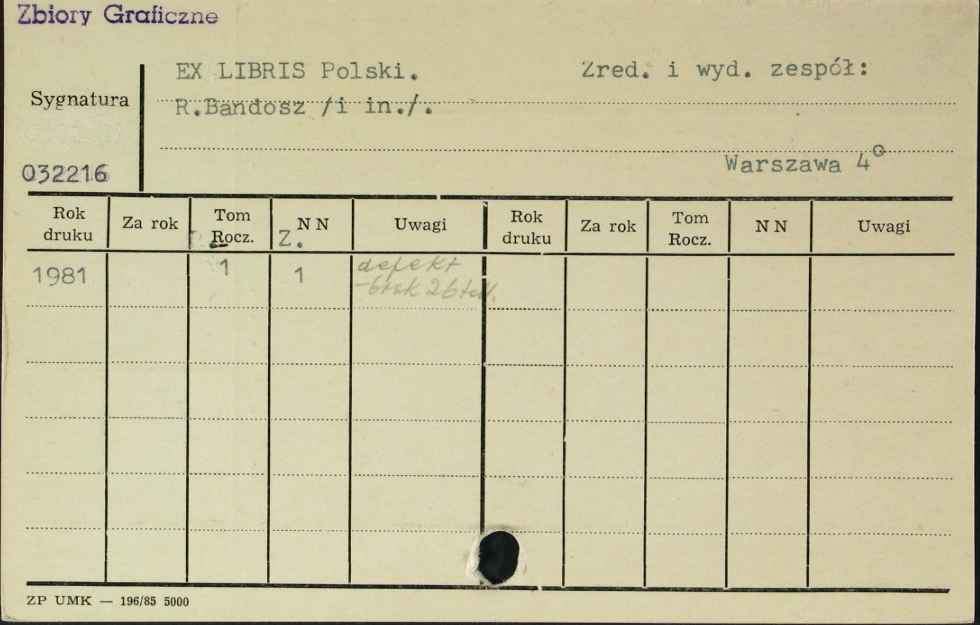 Zbiory Graficzne
EX LIBRIS Polski. Zred. i wyd. zespół:
Sygnatura
R.Bandosz /i in./.
032216
Warszawa 4°
Rok druku Za rok Tom Rocz. N N Uwagi Rok druku Za rok Tom Rocz. N N Uwagi
Z.
1981 1 1 defekt
-brak 2 btabl.
ZP UMK — 196/85 5000